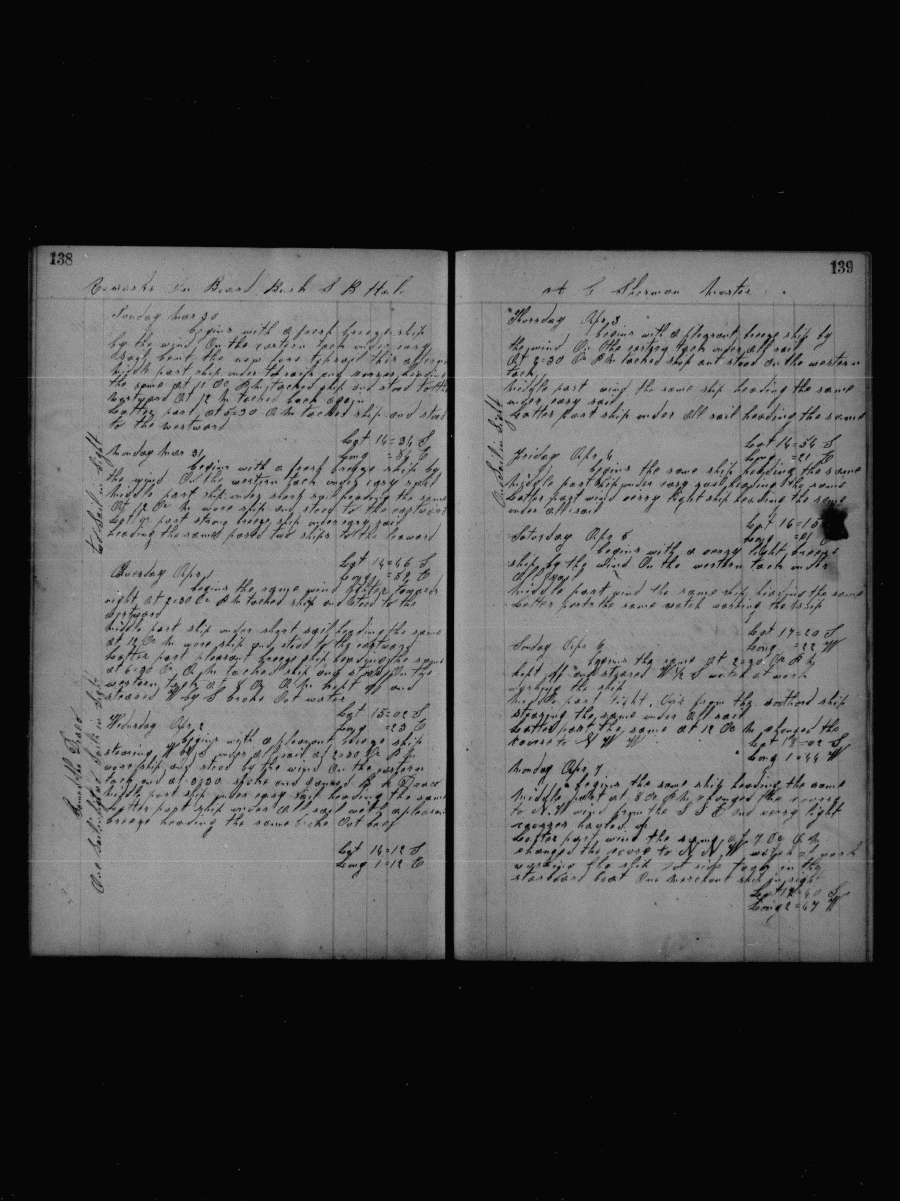 138
Remarks On Board Bark S B Hale
Sunday Mar 30
begins with a fresh breeze ship
by the wind On the eastern tack under easy
sail bent the new fore topsail this afternoon
middle part ship under
the same at 11 Oc P M tacked ship and stood to the
westward At 12 M tacked back again
Latter part, at 5=30 A M tacked ship and stood
to the westward
Lat 14=34 S
Long =34 E
Monday Mar 31
begins with a fresh breeze ship by
the wind On the western tack under easy sail
Middle part ship under short sail heading the same
At 12 Oc M wore ship and stood to the eastward
Latter part strong breeze ship under easy sail
heading the same passed two ships to the leeward
Lat 14=46 S
Long =39 E
Tuesday Apr 1
begins the same wind towards
night at 2=30 Oc P M tacked ship and stood to the
eastward
Middle part ship under short sail heading the same
at 12 Oc M wore ship and stood to the eastward
Latter part pleasant breeze ship heading the same
at 6=30 Oc A M tacked ship and stood On the
western tack at 8 Oc A M kept off and
steared W by S broke Out water
Lat 15=02 S
Long =23 E
Wedsday Apr 2
begins with a pleasant breeze ship
stearing W by S under all sail at 2=30 Oc P M
wore ship and stood by the wind On the western
tack and at 3=30 spoke and gamed B K Draco
Middle part ship under easy sail heading the same
Latter part ship under All sail with a pleasant
breeze heading the same broke Out beef
Lat 14=12 S
Long 1=12 E
Two Sail in Sight
Gam the Draco
One Sail in Sight
139
A C Sherman Master
Thursday Apr 3
begins with a pleasant breeze ship by
the wind On the eastern tack under all sail
At 2=30 Oc P M tacked ship and stood on the western
tack
Middle part wind the same ship heading the same
under easy sail
Latter part ship under All sail heading the same
Lat 14=54 S
Long =21 E
Friday Apr 4
begins the same ship heading the same
Middle part ship under easy sail heading the same
Latter part wind very light ship heading the same
under all sail
Lat 16=15
Long =01
Saturday Apr 5
begins with a very light breeze
ship by the wind On the western tack under
All sail
Middle part wind the same ship heading the same
Latter part the same watch washing the ship
Lat 17=20 S
Long =22 W
Sunday Apr 6
begins the same at 2=30 Oc P M
kept off and steared W ½ S watch at work
washing the ship
Middle part light airs from the southard ship
stearing the same under All sail
Latter part the same at 12 Oc M changed the
course to N W W
Lat 18=02 S
Long 1=44 W
Monday Apr 7
begins the same ship heading the same
Middle part at 8 Oc P M changed the course
to N.W wind from the S S E and very light
Latter part wind the same at 7 Oc A M
changed the course to N N W watch at work
washing the ship
starboard boat One merchant ship in sight
Lat 17=40 S
Long 2=47 W
One Sail in Sight